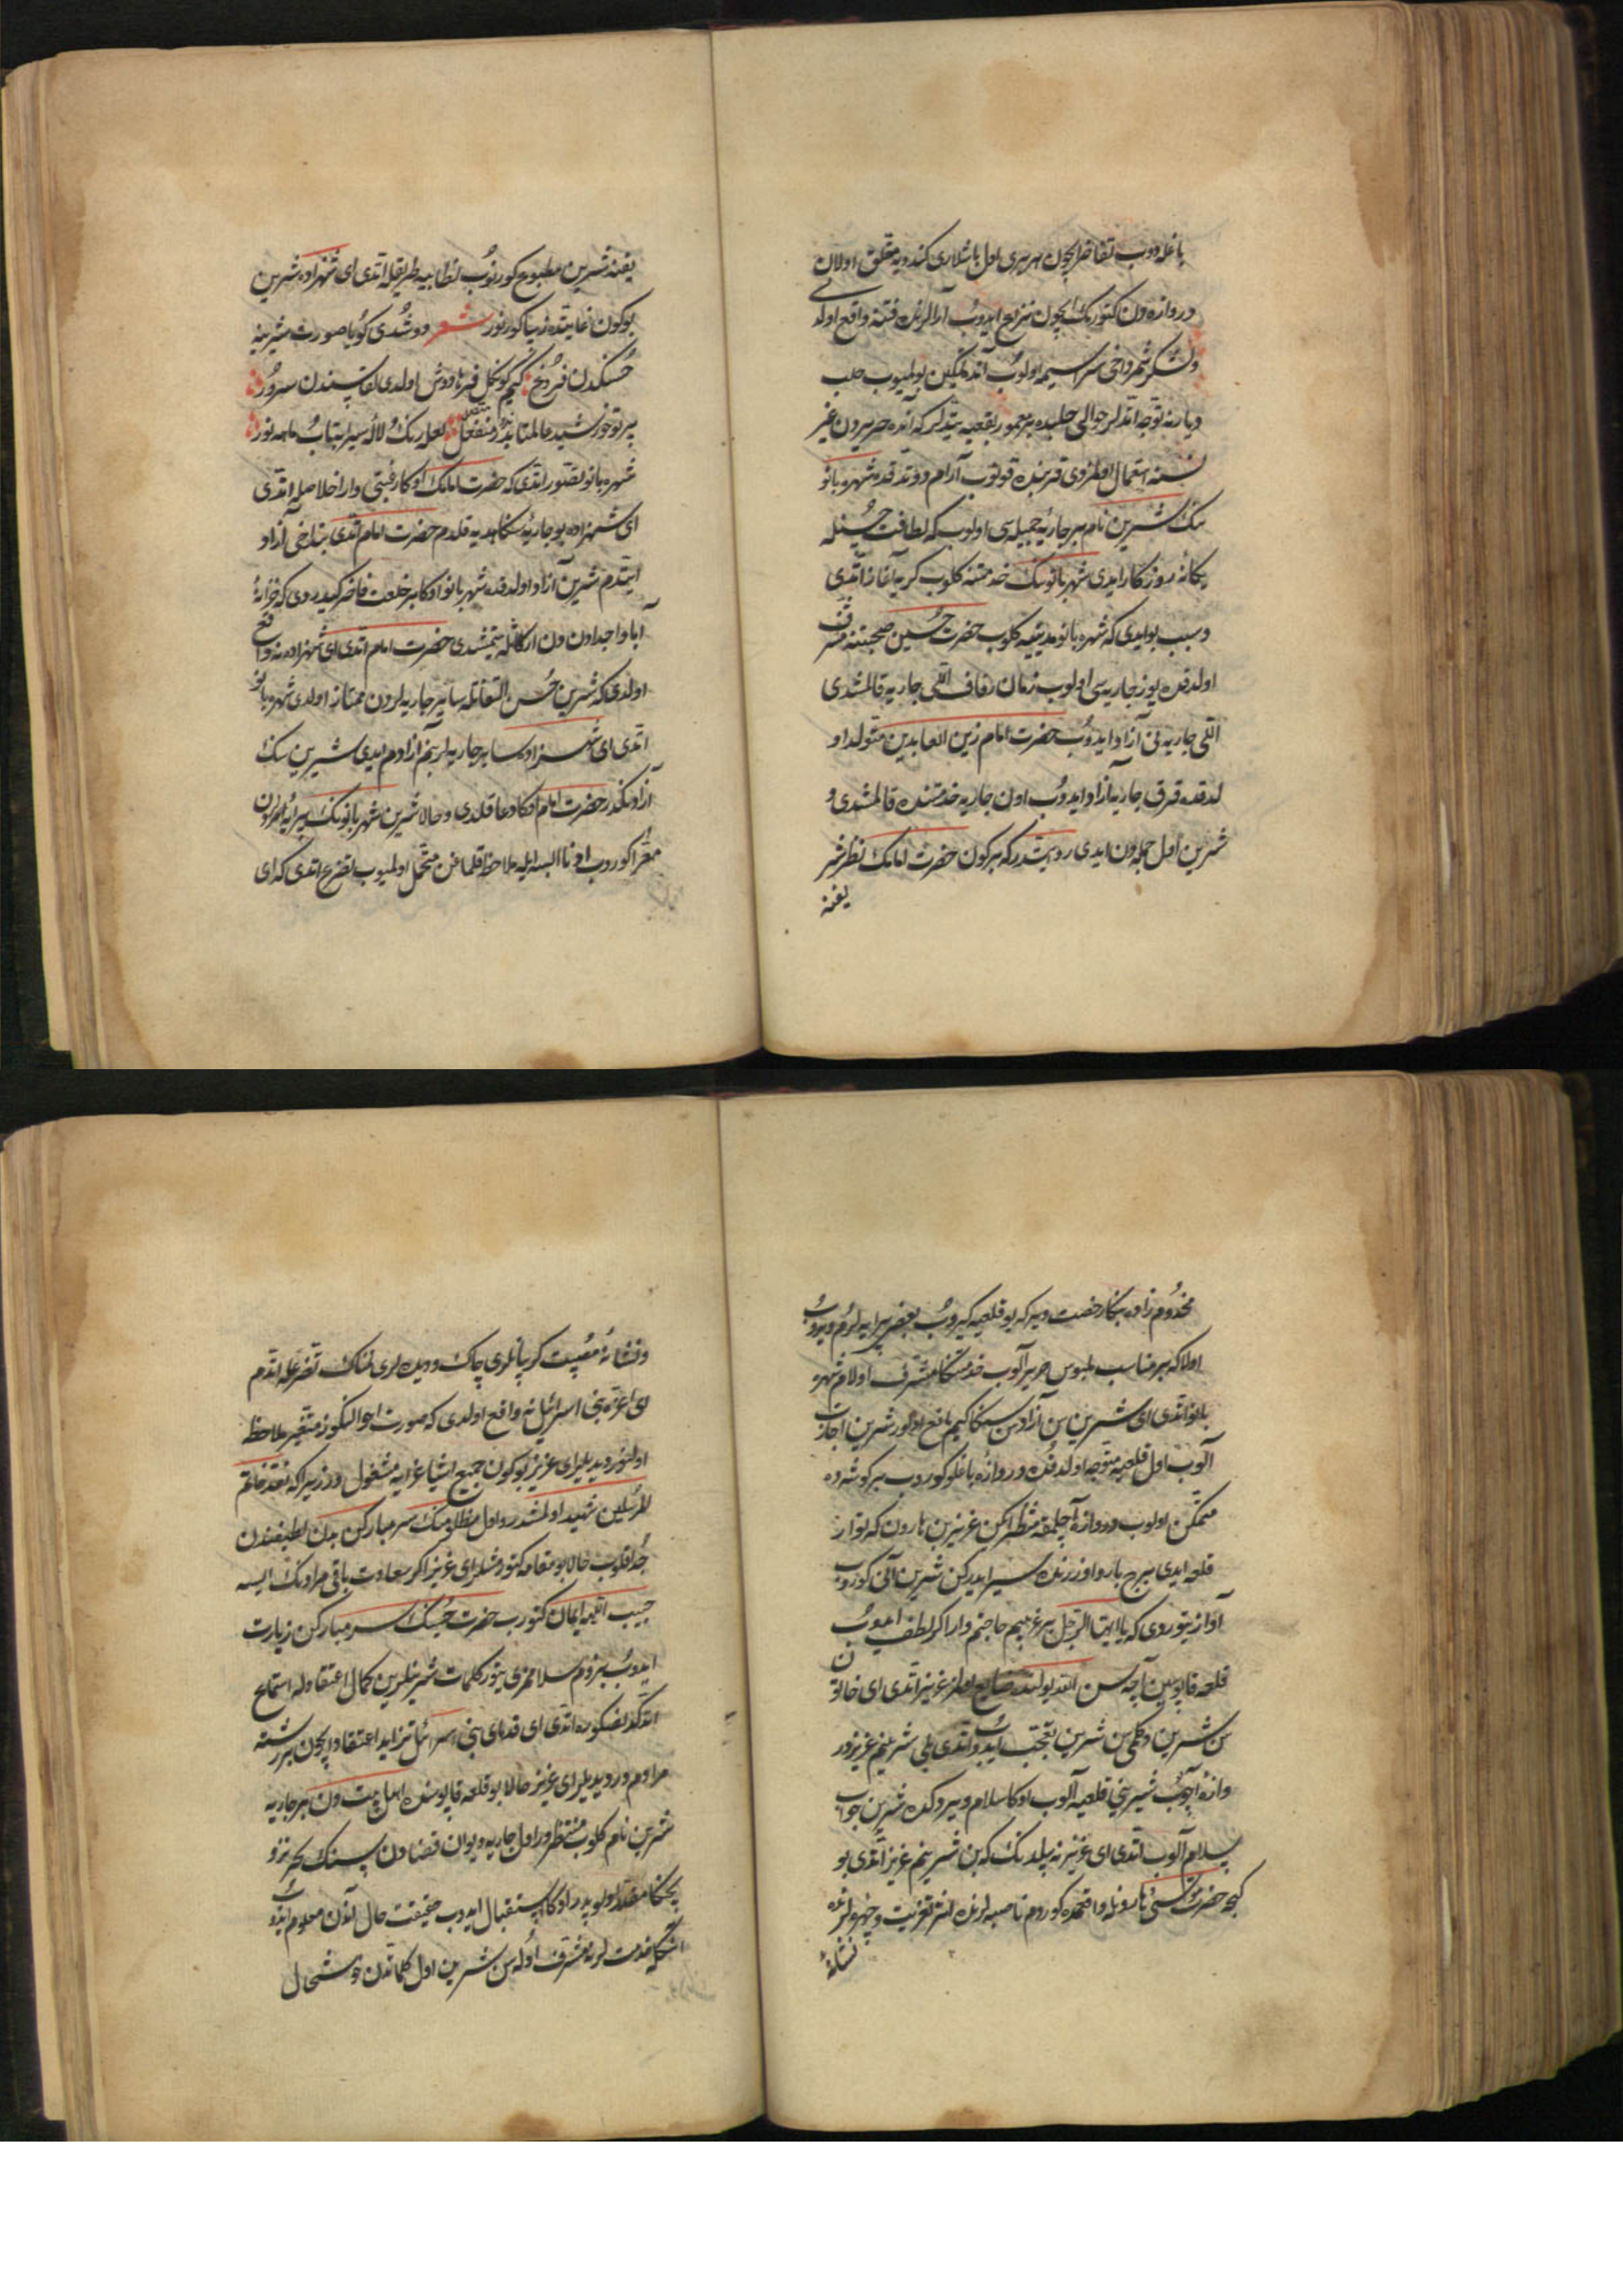 باغله دوب تفاخر ایچون هر بری اول باشلاری کندویه متعلق اولان
دروازه دن کتورمک ایچون نزاع ایدوب آرالرنده فتنه واقع اولدی
ولشکر شمر داخی سراسیمه اولوب آنده تمکین بولمیوب حلب
دیارنه توجه اتدلر حوالی حلبده بر معمور بقعیه یتدلر که آنده حریردن غیر
نسنه استعمال اولمزدی قربنده قونوب آرام دوتدقده شهربانو
نیک شیرین نام بر جاریهٔ جمیله سی اولوب که لطافت حسنله
یکانهٔ روزکار ایدی شهربانونیک خدمتنه کلوب کریه آغاز اتدی
وسبب بو ایدی که شهربانو مدینیه کلوب حضرت حسین صحبتنه مشرف
اولدقده یوز جاریه سی اولوب زمان زفاف اللی جاریه قالمشدی
اللی جاریه نی آزاد ایدوب حضرت امام زین العابدین متولد او
لدقده قرق جاریه آزاد ایدوب اون جاریه خدمتنده قالمشدی و
شیرین اول جمله دن ایدی روایتدر که بر کون حضرت امامنک نظر شر
یفنه
یفنه شیرین مطبوع کورنوب لطایبه طریقله اتدی ای شهزاده شیرین
بو کون غایتده زیبا کورنور شعر دوشدی کویا صورت شیرینه
حسنکدن فروغ کیم کوکل فرهادوش اولدی لقاسندن سرور
پرتو خورشید عالمتابدر منفعل لعل رنک لاله سیرابتاب ماهه نور
شهربانو تصور اتدی که حضرت امامک اوکا رغبتی وار اخلاصله اتدی
ای شهزاده بو جاریه سکا هدیه قلدم حضرت امام اتدی بنداخی آزاد
ایتدم شیرین آزاد اولدقده شهربانو اوکا بر خلعت فاخر کیدردی که خزانهٔ
آبا واجدادن دن ارکا یتمشدی حضرت امام اتدی ای شهزاده نه واقع
اولدی که شیرین حسن التفاتله سایر جاریه لردن ممتاز اولدی شهربانو
اتدی ای شهزاده سایر جاریه لر بنم آزادم ایدی شیرین سنک
آزادنکدر حضرت امام اوکا دعا قلدی وحالا شیرین شهربانونک پیرایه لردن
معرا کوروب ادنا البسه ایله ملاحظه قلماغن متحمل اولمیوب تضرع اتدی که ای
مخدوم زاده بنکا رخصت ویر که بو قلعیه کیروب بعضی پیرایه لرم ویروب
اولا که بر مناسب ملبوس حریر آلوب خدمتکا مشرف اولام شهر
بانو اتدی ای شیرین سن آزادسن سنکا کیم مانع اولور شیرین اجازت
آلوب اول قلعیه متوجه اولدقده دروازه باغلو کوروب بر کوشه ده
متمکن اولوب دروازه آچلمقه منتظر ایکن عزیز بن هارون که توار
قلعه ایدی برج بارو اوزرنده سیر ایدرکن شیرین آنی کوروب
آواز یتوردی که یا ایها الرجل بر غریبم حاجتم وار اکر لطف ایدوب
قلعه قاپوسین آچه سن الله یولنده ضایع اولمز عزیز اتدی ای خاتون
سن شیرین دکلمیسن شیرین تعجب ایدوب اتدی بلی شیرینم عزیز در
وازه آچوب شیرینی قلعیه آلوب اوکا سلام ویردکده شیرین جواب
سلام آلوب اتدی ای عزیز نه بیلدنک که بن شیرینم عزیز اتدی بو
کیجه حضرت موسی هارونله واقعمده کوردم ناصیه لرنده اثر تعزیت وچهره لرنده
نشانهٔ
ونشانهٔ مصیبت کریبانلری چاک ودیده لری نمناک تضرعله اتدم
ای اعزهٔ بنی اسرائیل نه واقع اولدی که صورت احوالنکوز متغیر ملاحظه
اولنور دیدیلر ای عزیز بو کون جمیع اشیا عزایه مشغولدر زیرا که نقد خاتم
المرسلین شهید اولمشدر واول مظلومنک سر مبارکن بدن لطیفندن
جدا قلوب حالا بو مقامه کتورمشلر ای عزیز اکر سعادت باقی مرادنک ایسه
حبیب اللهه ایمان کتورب حضرت حسینک سر مبارکن زیارت
ایدوب بزدم سلاممزی یتور کلمات شیرینلرین کمال اعتقادله استماع
اتدکدنصکره اتدی ای قدمای بنی اسرائیل تزاید اعتقاد ایچون بر رشته
مرادم در دیدیلر ای عزیز حالا بو قلعه قاپوسنده اهل بیت دن بر جاریه
شیرین نام کلوب منتظردر اول جاریه دیوان قضادن سنک تجریزو
بجکا مقدر اولوبدر اوکا استقبال ایدوب حقیقت حال آندن معلوم ایدوب
آنکله خدمت لرنه مشرف اوله سن شیرین اول کلماتدن خوشحال